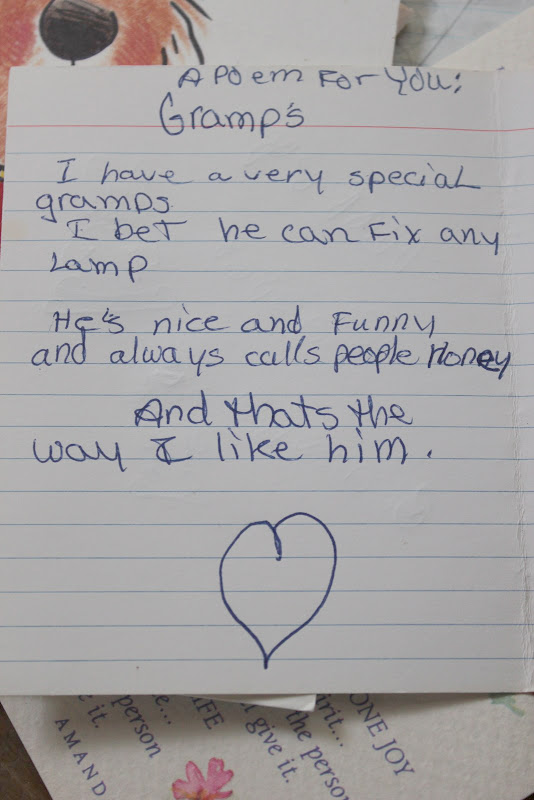 A Poem For You:
Gramp's
I have a very special
gramps
I bet he can Fix any
Lamp
He's nice and Funny
and always calls people Honey
And thats the
way I like him.
ONE JOY
irit...
the perso
give it.
IFE
e...
person
e it.
AMAND